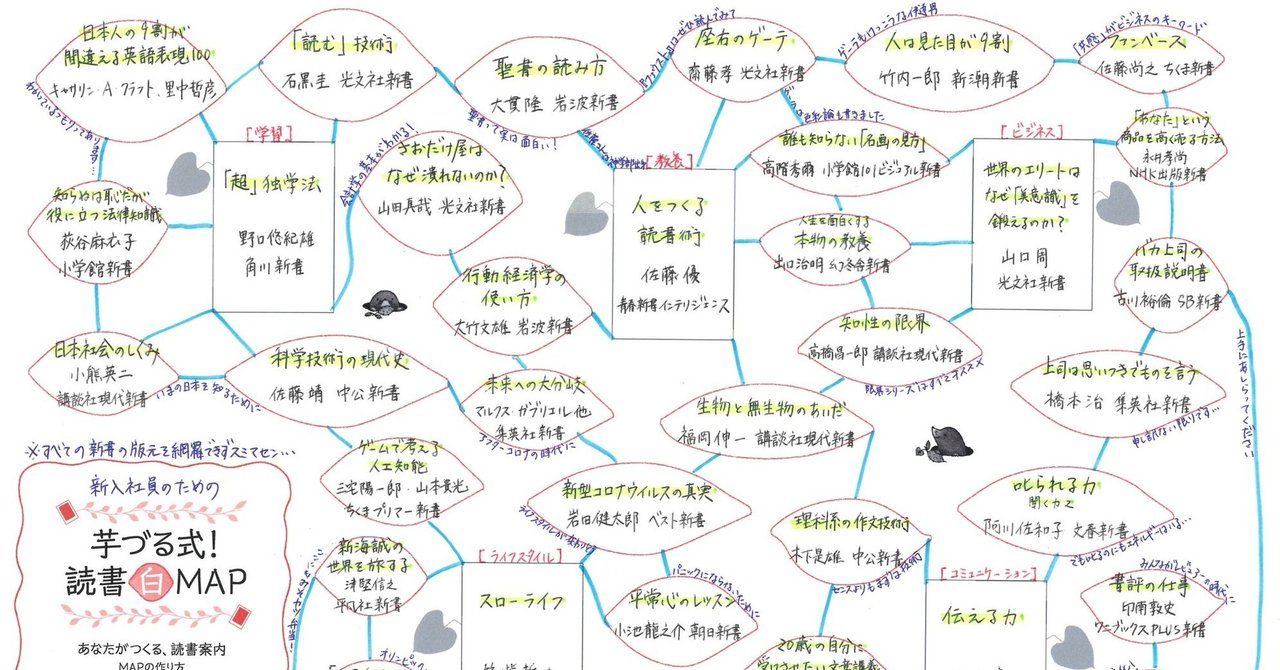 日本人の9割が
間違える英語表現100
キャサリン・A・クラフト、里中哲彦
わかっているつもりってあります…
「読む」技術
石黒圭 光文社新書
聖書の読み方
大貫隆 岩波新書
聖書って実は面白い!
座右のゲーテ
齋藤孝 光文社新書
人は見た目が9割
竹内一郎 新潮新書
「共感」がビジネスのキーワード
ファンベース
佐藤尚之 ちくま新書
[学習]
「超」独学法
野口悠紀雄
角川新書
会計学の基本がわかる!
さおだけ屋は
なぜ潰れないのか?
山田真哉 光文社新書
[教養]
人をつくる
読書術
佐藤優
青春新書インテリジェンス
誰も知らない「名画の見方」
高階秀爾 小学館101ビジュアル新書
[ビジネス]
世界のエリートは
なぜ「美意識」を
鍛えるのか?
山口周
光文社新書
「あなた」という
商品を高く売る方法
永井孝尚
NHK出版新書
知らぬは恥だが
役に立つ法律知識
萩谷麻衣子
小学館新書
人生を面白くする
本物の教養
出口治明 幻冬舎新書
行動経済学の
使い方
大竹文雄 岩波新書
バカ上司の
取扱説明書
古川裕倫 SB新書
上手にあしらってください
知性の限界
高橋昌一郎 講談社現代新書
限界シリーズはすべてオススメ
日本社会のしくみ
小熊英二
講談社現代新書
いまの日本を知るために
科学技術の現代史
佐藤靖 中公新書
未来への大分岐
マルクス・ガブリエル他
集英社新書
アフターコロナの時代に
生物と無生物のあいだ
福岡伸一 講談社現代新書
上司は思いつきでものを言う
橋本治 集英社新書
申し訳ない限りです…
※すべての新書の版元を網羅できずスミマセン…
新入社員のための
芋づる式!
読書自MAP
あなたがつくる、読書案内
MAPの作り方
ゲームで考える
人工知能
三宅陽一郎・山本貴光
ちくまプリマー新書
新型コロナウイルスの真実
岩田健太郎 ベスト新書
ライフスタイルが変わりそう
理科系の作文技術
木下是雄 中公新書
センスよりもまずは技術
叱られる力
聞く力2
阿川佐和子 文春新書
でも叱るのにもエネルギーはいる…
新海誠の
世界を旅する
津堅信之
平凡社新書
[ライフスタイル]
スローライフ
パニックにならないために
平常心のレッスン
小池龍之介 朝日新書
[コミュニケーション]
伝える力
書評の仕事
印南敦史
ワニブックスPLUS新書
20歳の自分に
受けさせたい文章講義
オリンピック